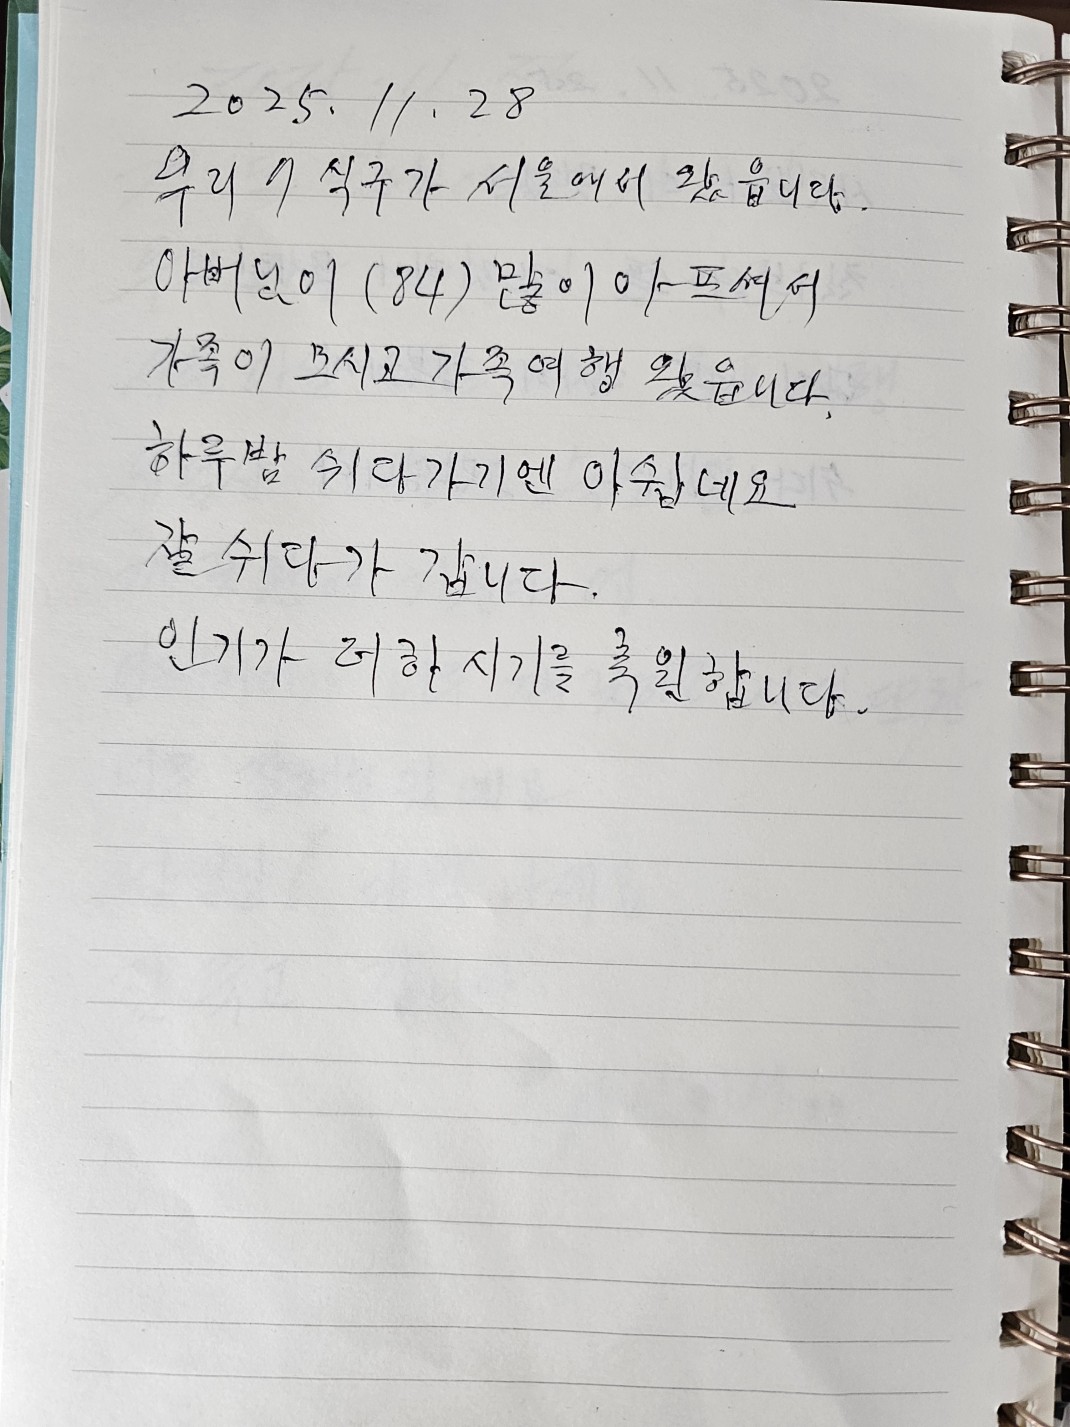 2025. 11. 28
우리 7 식구가 서울에서 왔읍니다.
아버님이 (84) 많이 아프셔서
가족이 모시고 가족여행 왔읍니다.
하루밤 쉬다가기엔 아쉽네요
잘 쉬다가 갑니다.
인기가 더한 시기를 축원합니다.